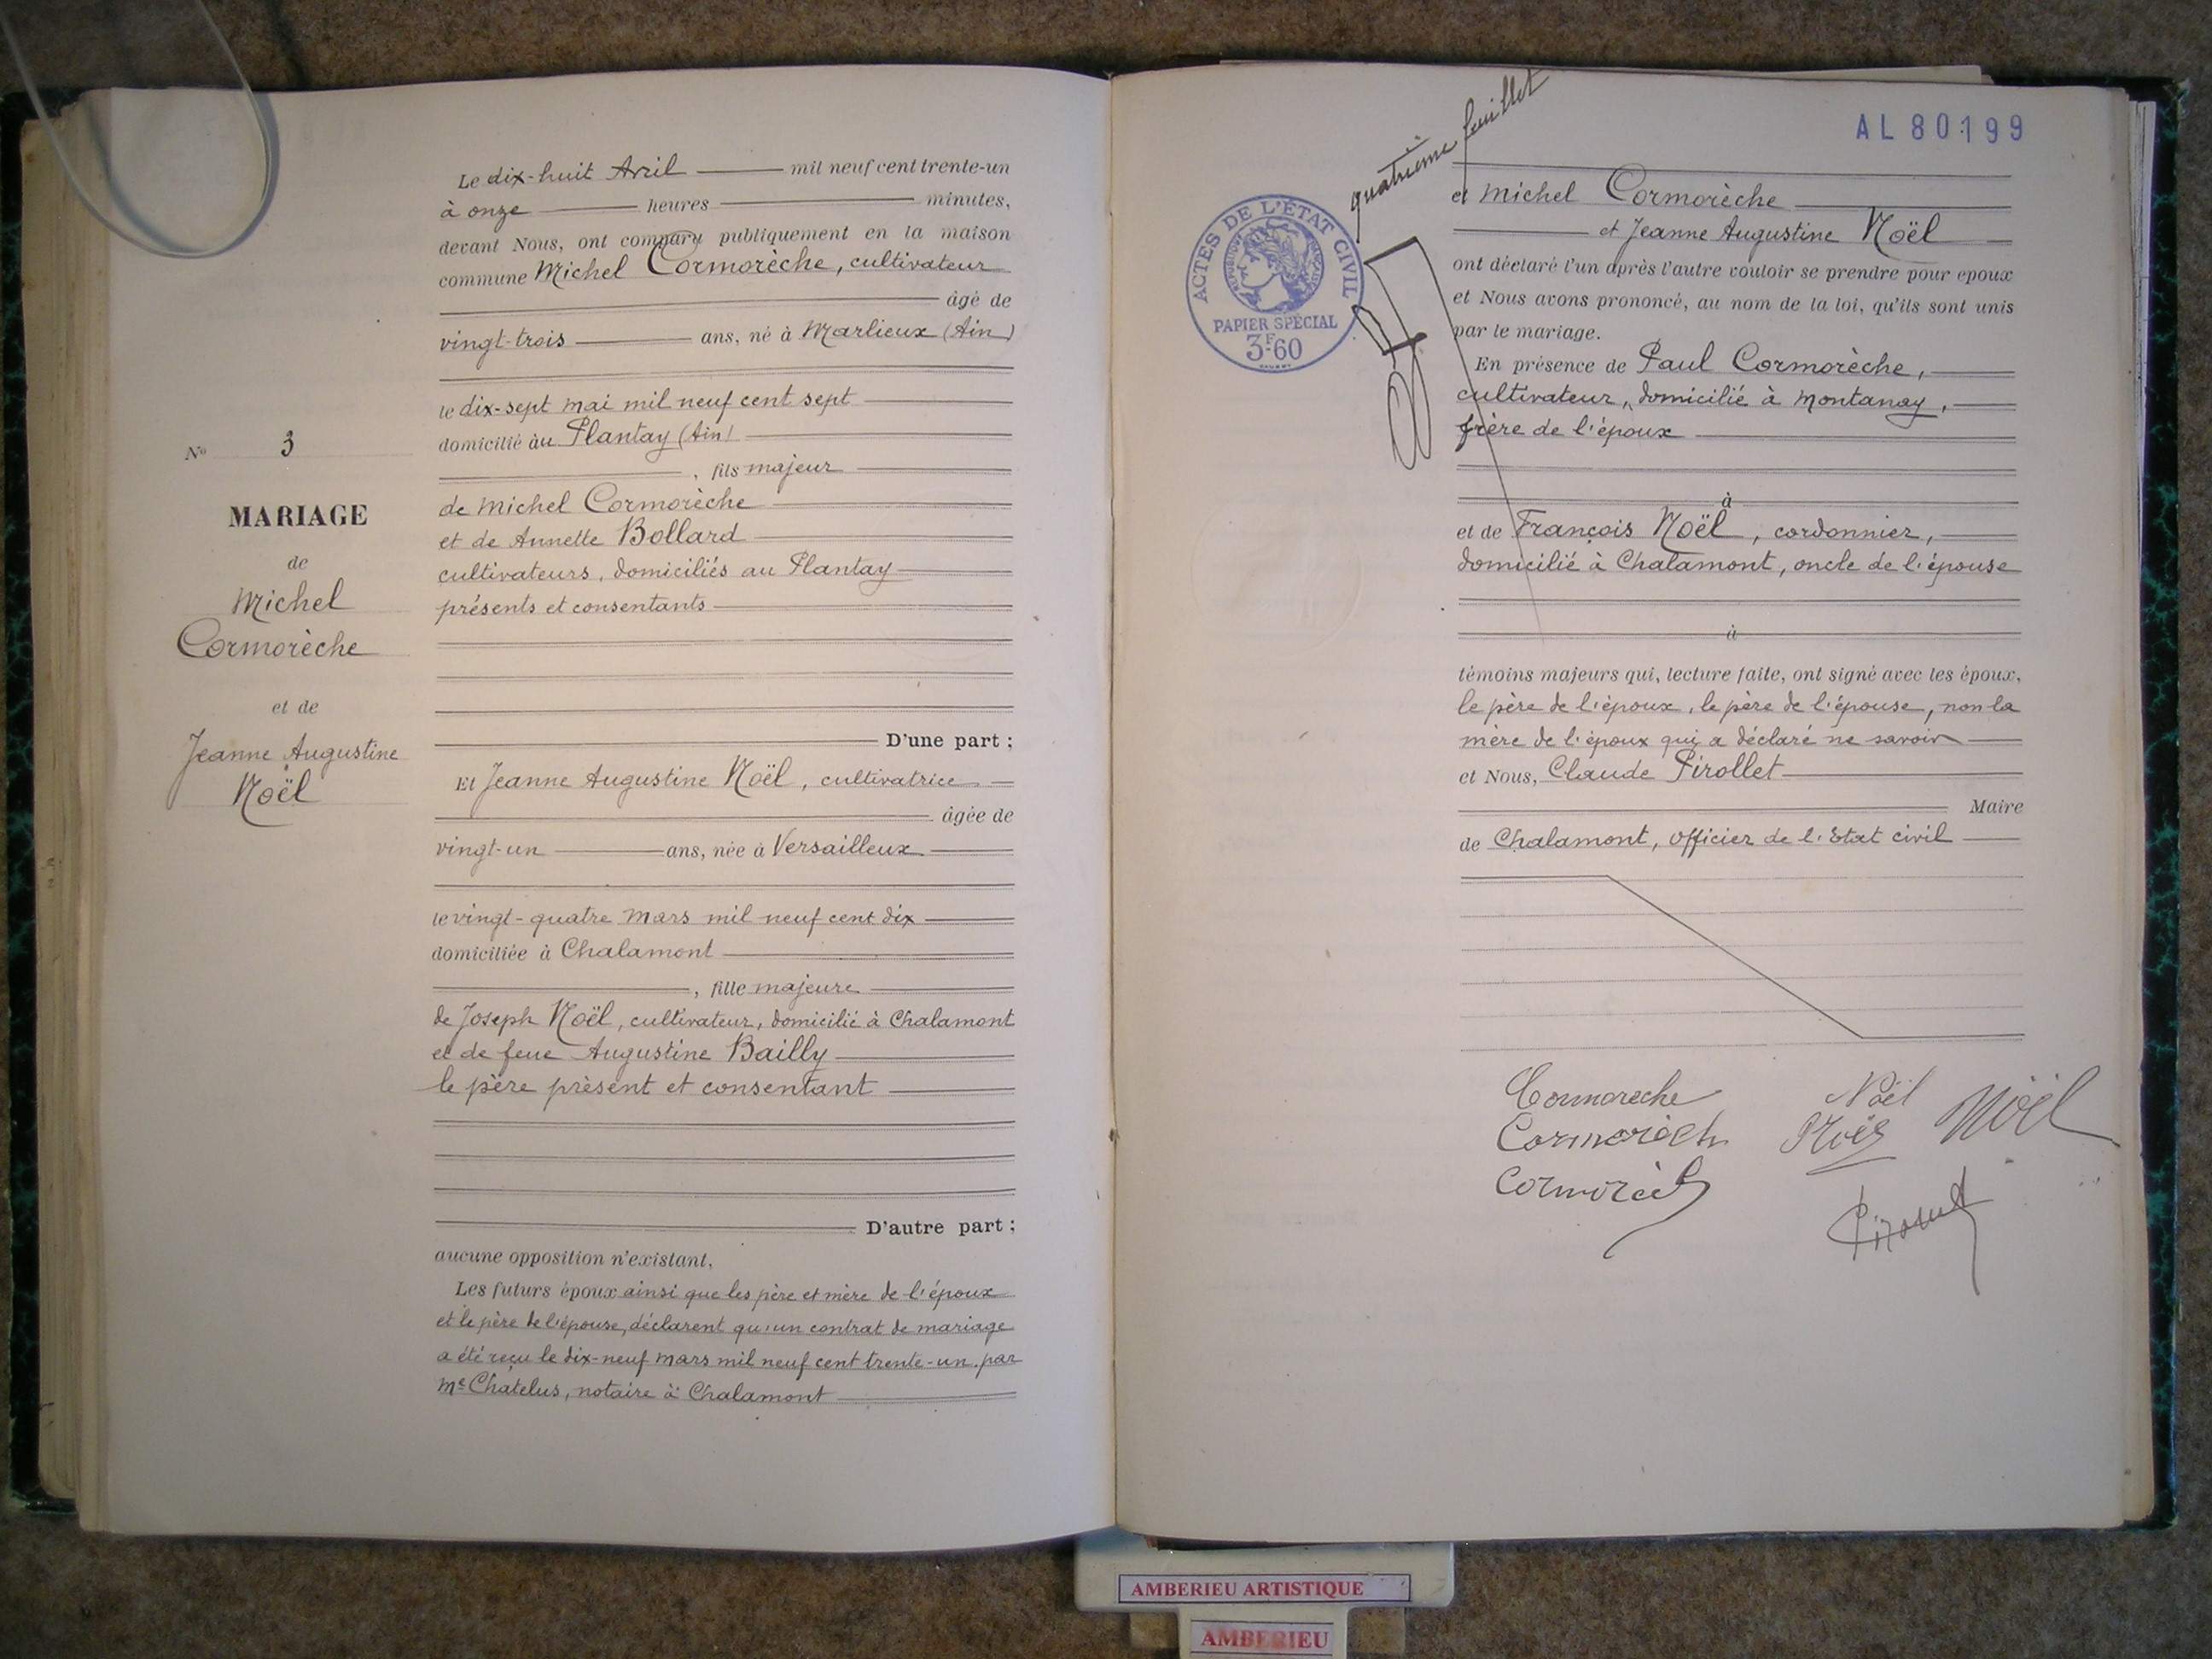 Le dix-huit Avril mil neuf cent trente-un
à onze heures minutes,
devant Nous, ont comparu publiquement en la maison
commune Michel Cormorèche, cultivateur
âgé de
vingt-trois ans, né à Marlieux (Ain)
le dix-sept mai mil neuf cent sept
domicilié àu Plantay (Ain)
, fils majeur
de Michel Cormorèche
et de Annette Bollard
cultivateurs, domiciliés au Plantay
présents et consentants
D'une part ;
Et Jeanne Augustine Noël, cultivatrice
âgée de
vingt-un ans, née à Versailleux
le vingt-quatre mars mil neuf cent dix
domiciliée à Chalamont
, fille majeure
de Joseph Noël, cultivateur, domicilié à Chalamont
et de feue Augustine Bailly
le père présent et consentant
D'autre part ;
aucune opposition n'existant,
Les futurs époux ainsi que les père et mère de l'époux
et le père de l'épouse, déclarent qu'un contrat de mariage
a été reçu le dix-neuf mars mil neuf cent trente-un par
Me Chatelus, notaire à Chalamont
No 3
MARIAGE
de
Michel
Cormorèche
et de
Jeanne Augustine
Noël
quatrième feuillet
AL 80199
ACTES DE L'ÉTAT CIVIL
RÉPUBLIQUE FRANÇAISE
PAPIER SPÉCIAL
3F60
et Michel Cormorèche
et Jeanne Augustine Noël
ont déclaré l'un après l'autre vouloir se prendre pour époux
et Nous avons prononcé, au nom de la loi, qu'ils sont unis
par le mariage.
En présence de Paul Cormorèche,
cultivateur, domicilié à Montanay,
frère de l'époux
à
et de François Noël, cordonnier,
domicilié à Chalamont, oncle de l'épouse
à
témoins majeurs qui, lecture faite, ont signé avec les époux,
le père de l'époux, le père de l'épouse, non la
mère de l'époux qui a déclaré ne savoir
et Nous, Claude Pirollet
Maire
de Chalamont, officier de l'Etat civil
Cormoreche Noël Nöel
Cormorèch Noël
Cormorèch
Pirollet
AMBERIEU ARTISTIQUE
AMBERIEU